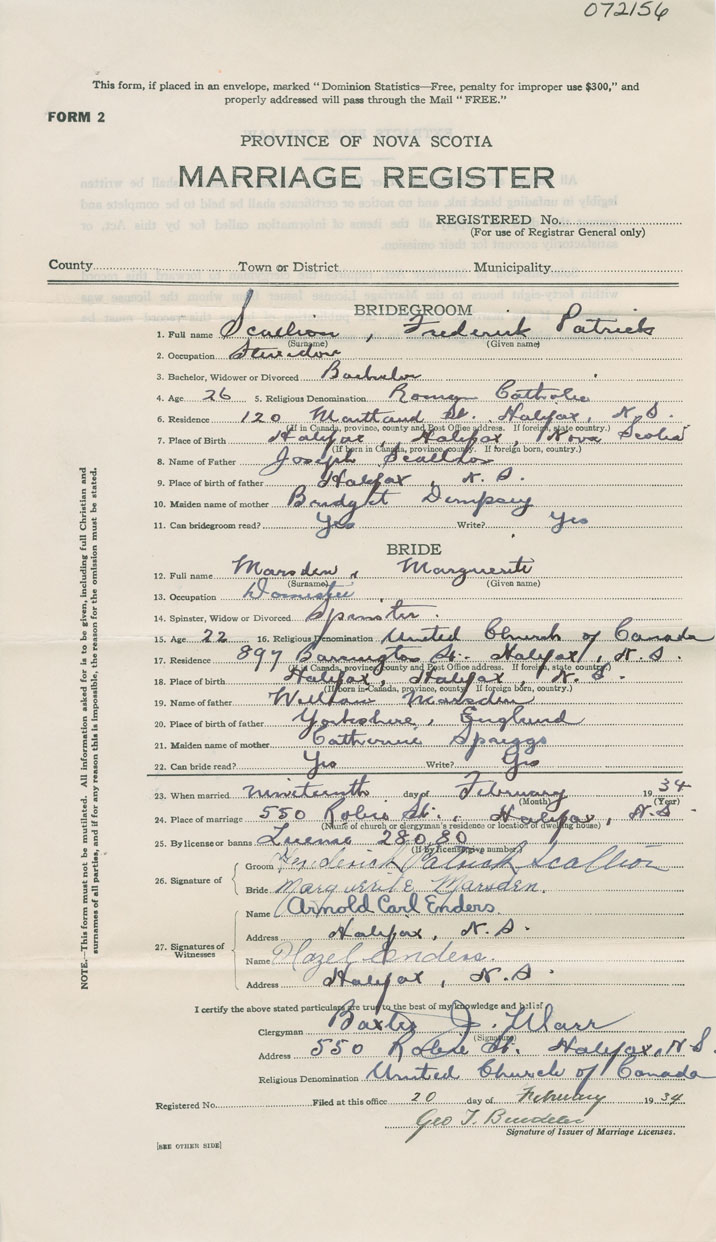 072156
This form, if placed in an envelope, marked "Dominion Statistics—Free, penalty for improper use $300," and
properly addressed will pass through the Mail "FREE."
FORM 2
PROVINCE OF NOVA SCOTIA
MARRIAGE REGISTER
REGISTERED No.
(For use of Registrar General only)
County Town or District Municipality
BRIDEGROOM
1. Full name Scallion, Frederick Patrick
(Surname) (Given name)
2. Occupation Stevedore
3. Bachelor, Widower or Divorced Bachelor
4. Age 26 5. Religious Denomination Roman Catholic
6. Residence 120 Maitland St. Halifax, N.S.
(If in Canada, province, county and Post Office address. If foreign, state country.)
7. Place of Birth Halifax, Halifax, Nova Scotia
(If born in Canada, province, county. If foreign born, country.)
8. Name of Father Joseph Scallion
9. Place of birth of father Halifax, N.S.
10. Maiden name of mother Bridget Dempsey
11. Can bridegroom read? Yes Write? Yes
BRIDE
12. Full name Marsden, Marguerite
(Surname) (Given name)
13. Occupation Domestic
14. Spinster, Widow or Divorced Spinster.
15. Age 22 16. Religious Denomination United Church of Canada
17. Residence 897 Barrington St. Halifax, N.S.
(If in Canada, province, county and Post Office address. If foreign, state country.)
18. Place of birth Halifax, Halifax, N.S.
(If born in Canada, province, county. If foreign born, country.)
19. Name of father William Marsden
20. Place of birth of father Yorkshire, England
21. Maiden name of mother Catherine Spriggs
22. Can bride read? Yes Write? Yes
23. When married nineteenth day of February 1934
(Month) (Year)
24. Place of marriage 550 Robie St., Halifax, N.S.
(Name of church or clergyman's residence or location of dwelling house)
25. By license or banns License 28080
(If by license give number)
26. Signature of Groom Frederick Patrick Scallion
Bride Marguerite Marsden.
27. Signatures of Witnesses
Name Arnold Carl Enders
Address Halifax, N.S.
Name Hazel Enders.
Address Halifax, N.S.
I certify the above stated particulars are true to the best of my knowledge and belief
Clergyman Baxter J. Marr
(Signature)
Address 550 Robie St. Halifax, N.S.
Religious Denomination United Church of Canada
Registered No. Filed at this office 20 day of February 1934
Geo T.
Signature of Issuer of Marriage Licenses.
[SEE OTHER SIDE]
NOTE.—This form must not be mutilated. All information asked for is to be given, including full Christian and
surnames of all parties, and if for any reason this is impossible, the reason for the omission must be stated.